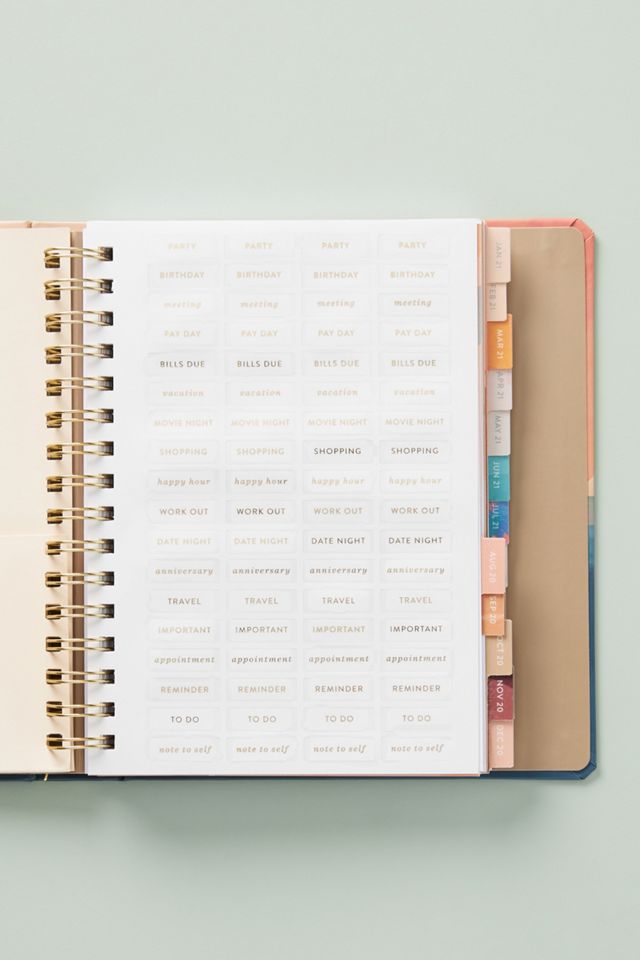 PARTY PARTY PARTY PARTY
BIRTHDAY BIRTHDAY BIRTHDAY BIRTHDAY
meeting meeting meeting meeting
PAY DAY PAY DAY PAY DAY PAY DAY
BILLS DUE BILLS DUE BILLS DUE BILLS DUE
vacation vacation vacation vacation
MOVIE NIGHT MOVIE NIGHT MOVIE NIGHT MOVIE NIGHT
SHOPPING SHOPPING SHOPPING SHOPPING
happy hour happy hour happy hour happy hour
WORK OUT WORK OUT WORK OUT WORK OUT
DATE NIGHT DATE NIGHT DATE NIGHT DATE NIGHT
anniversary anniversary anniversary anniversary
TRAVEL TRAVEL TRAVEL TRAVEL
IMPORTANT IMPORTANT IMPORTANT IMPORTANT
appointment appointment appointment appointment
REMINDER REMINDER REMINDER REMINDER
TO DO TO DO TO DO TO DO
note to self note to self note to self note to self
JAN 21
FEB 21
MAR 21
APR 21
MAY 21
JUN 21
JUL 21
AUG 20
SEP 20
OCT 20
NOV 20
DEC 20